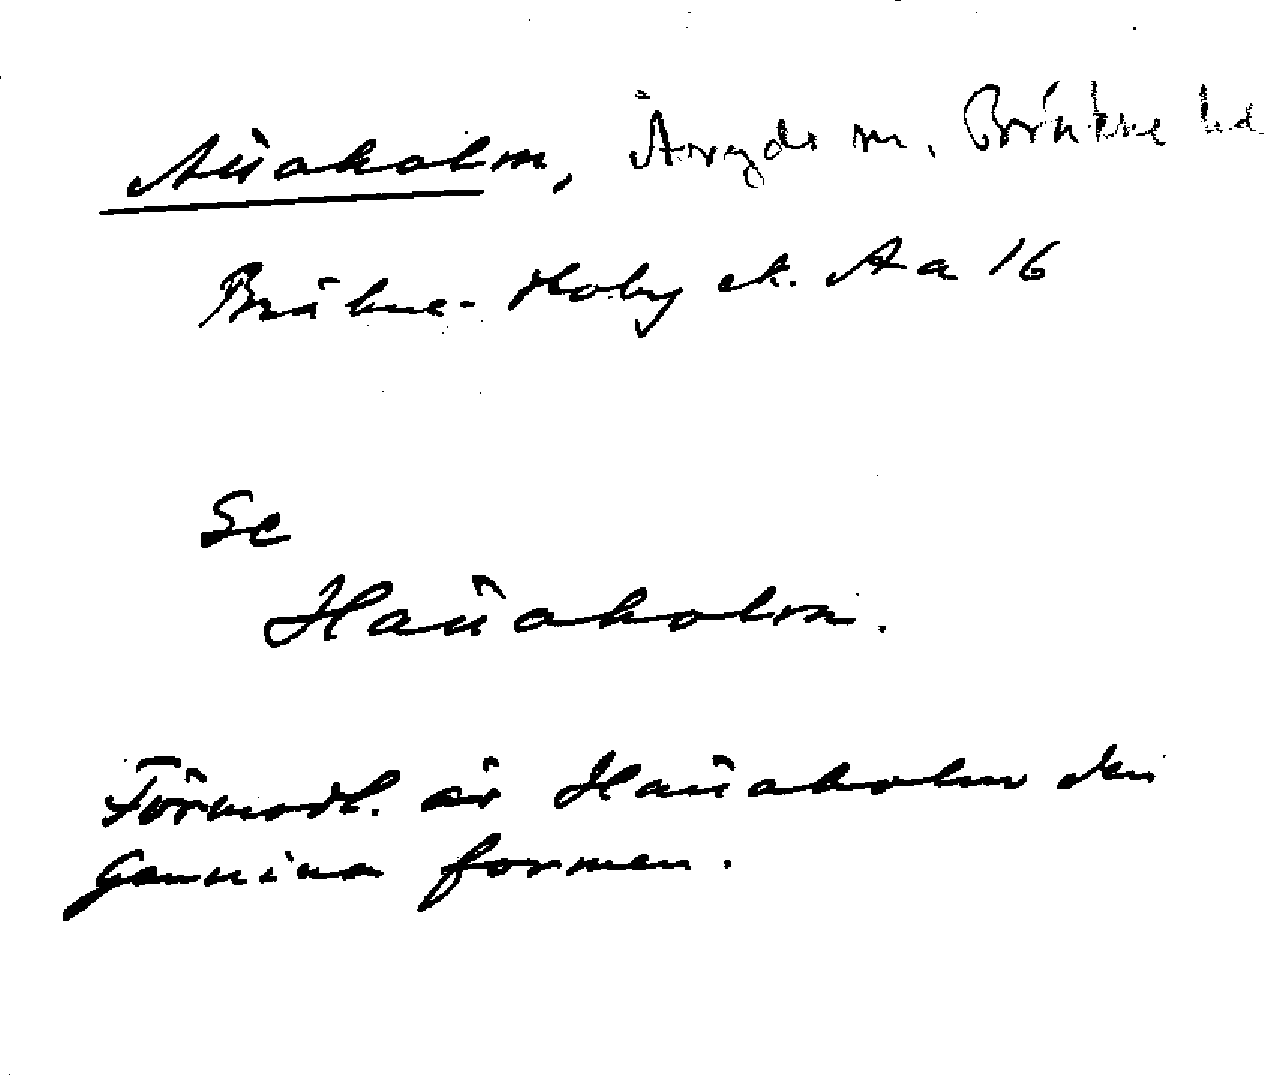 Aüaholm, Åryds sn, Bräkne hd
Bräkne-Hoby ek. Aa 16
Se
Haüaholm.
Förmodl. är Haüaholm den
genuina formen.